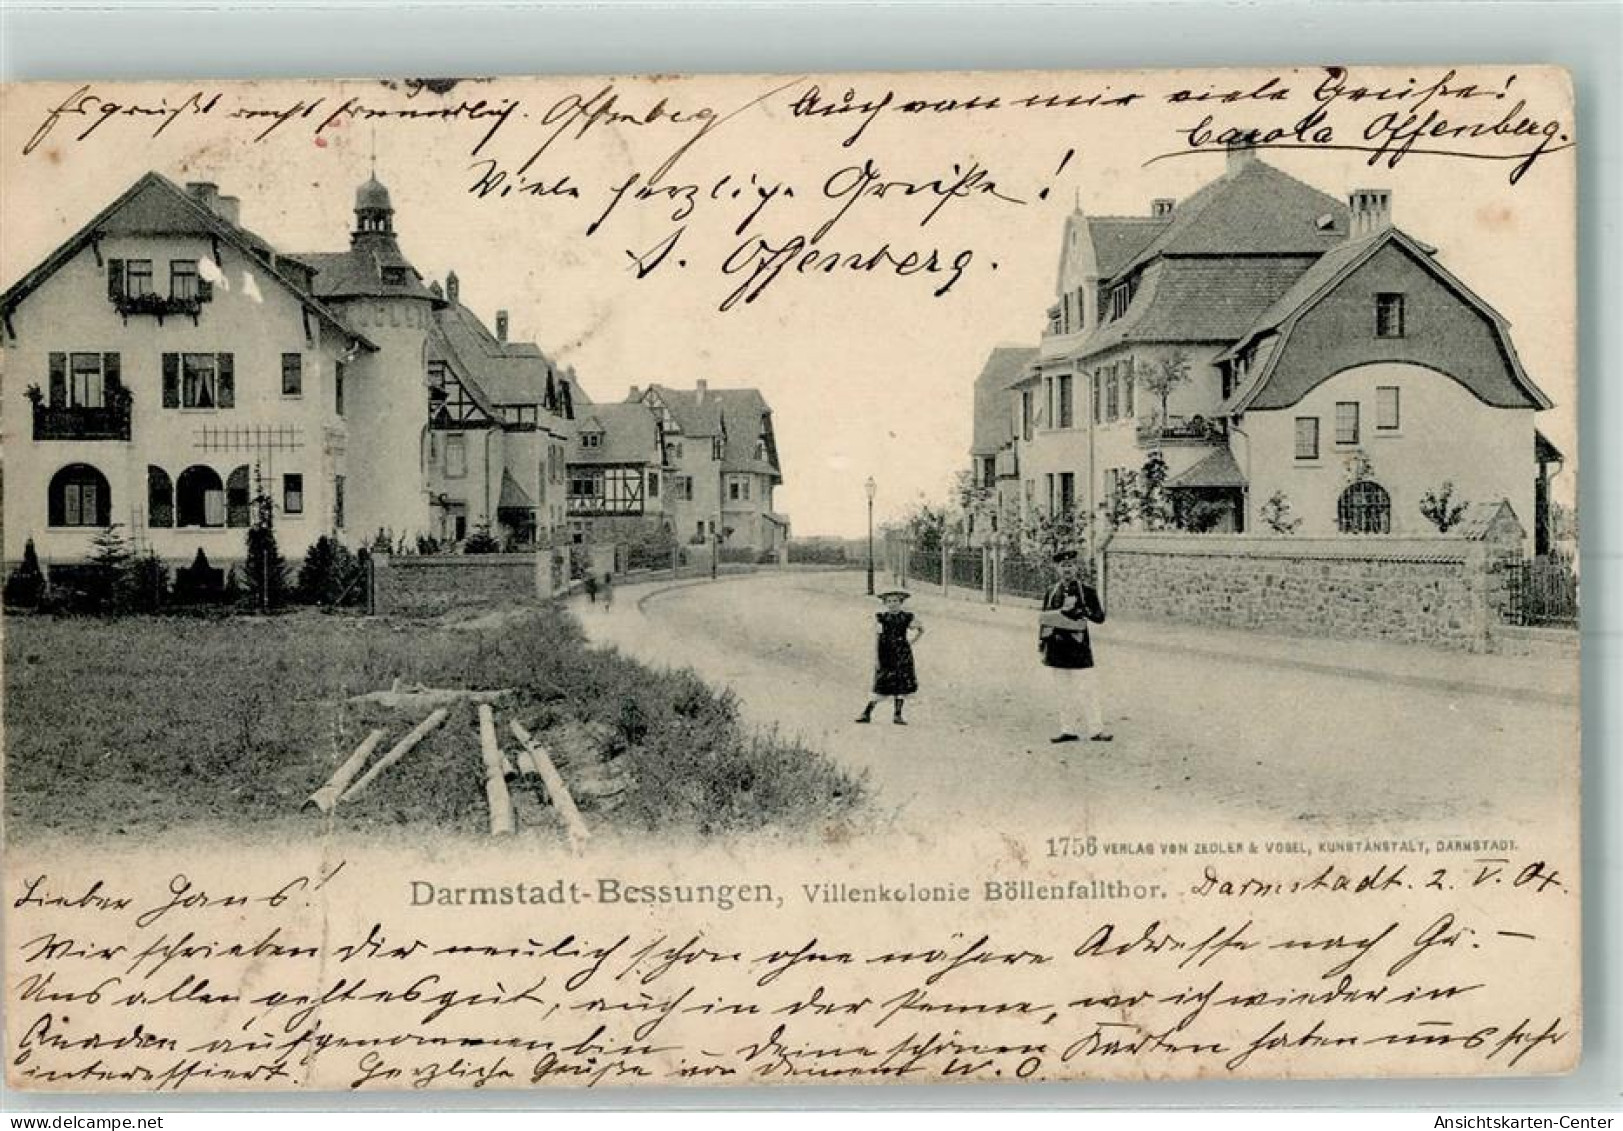 Es grüßt recht freundlich. Offenberg
Auch von mir viele Grüße!
Carola Offenberg.
Viele herzliche Grüße!
A. Offenberg.
1756 VERLAG VON ZEDLER & VOGEL, KUNSTANSTALT, DARMSTADT.
Darmstadt-Bessungen, Villenkolonie Böllenfallthor.
Darmstadt. 2. V. 04.
Lieber Hans!
Wir schrieben Dir neulich schon ohne nähere Adresse nach Gr. –
Uns allen geht es gut, auch in der Penne, wo ich wieder in
Gnaden aufgenommen bin – Deine schönen Karten haben uns sehr
interessiert. Herzliche Grüße von Deinem W. O.
Ansichtskarten-Center